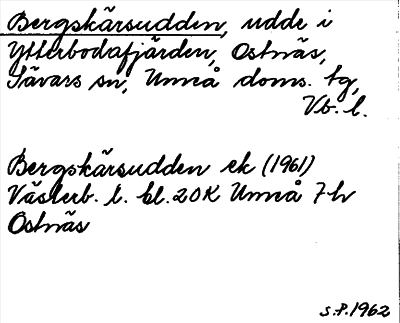 Bergskärsudden, udde i
Ytterbodafjärden, Ostnäs,
Sävars sn, Umeå doms. tg,
Vb. l.
Bergskärsudden ek (1961)
Västerb. l. bl. 20K Umeå 7h
Ostnäs
S.P. 1962